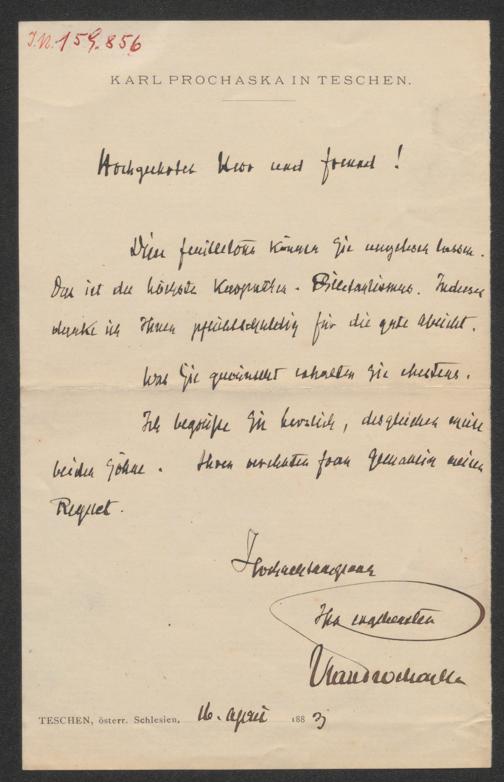 J.N. 159.856
KARL PROCHASKA IN TESCHEN.
Hochgeehrter Herr und Freund!
Diese Feuilletons können Sie ungelesen lassen.
Das ist der höchste Karpathen-Dilettantismus. Indessen
danke ich Ihnen pflichtschuldig für die gute Absicht.
Was Sie gewünscht erhalten Sie ehestens.
Ich begrüße Sie herzlich, desgleichen meine
beiden Söhne. Ihrer verehrten Frau Gemahlin meinen
Respect.
Hochachtungsvoll
Ihr ergebenster
Karl Prochaska
TESCHEN, österr. Schlesien, 16. April 188